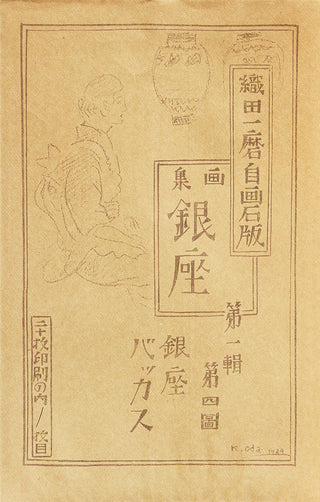 織田一磨自画石版
画集
銀座
第一輯
第四圖
銀座
バッカス
二十枚印刷の内ノ一枚目
K. Oda 1929